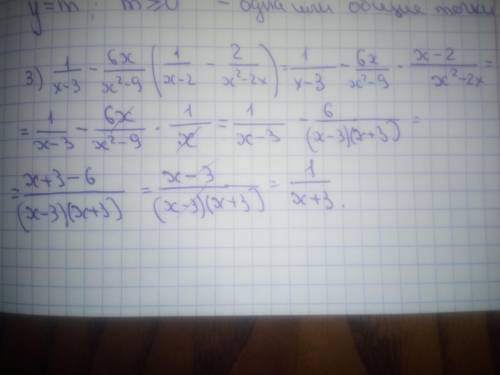 y=m; m≥0 - одна или общие точки
3) 1/(x-3) - 6x/(x²-9) (1/(x-2) - 2/(x²-2x)) = 1/(x-3) - 6x/(x²-9) · (x-2)/(x²-2x) =
= 1/(x-3) - 6x/(x²-9) · 1/x = 1/(x-3) - 6/((x-3)(x+3)) =
= (x+3-6)/((x-3)(x+3)) = (x-3)/((x-3)(x+3)) = 1/(x+3).